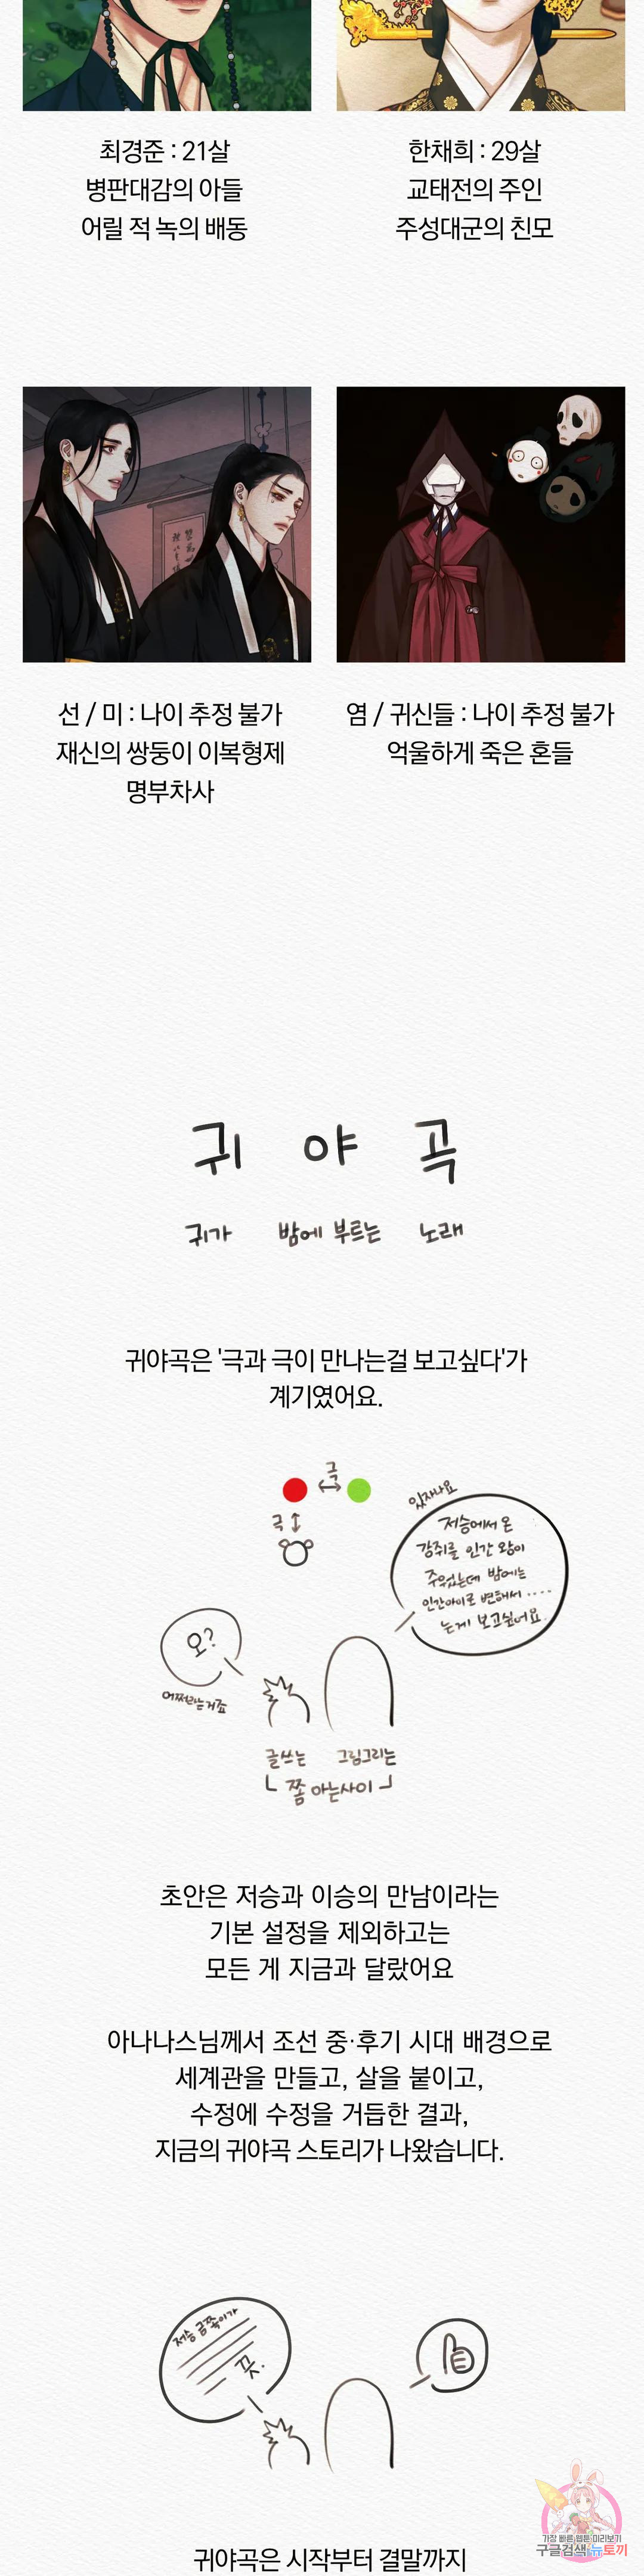 최경준 : 21살
병판대감의 아들
어릴 적 녹의 배동
한채희 : 29살
교태전의 주인
주성대군의 친모
선 / 미 : 나이 추정 불가
재신의 쌍둥이 이복형제
명부차사
염 / 귀신들 : 나이 추정 불가
억울하게 죽은 혼들
귀 야 곡
귀가 밤에 부르는 노래
귀야곡은 '극과 극이 만나는걸 보고싶다'가
계기였어요.
극
극
있잖아요
저승에서 온
강쥐를 인간 왕이
주웠는데 밤에는
인간아이로 변해서 ....
는게 보고싶어요
오?
어쩌라는거죠
글쓰는 그림그리는
쫌 아는사이
초안은 저승과 이승의 만남이라는
기본 설정을 제외하고는
모든 게 지금과 달랐어요
아나나스님께서 조선 중·후기 시대 배경으로
세계관을 만들고, 살을 붙이고,
수정에 수정을 거듭한 결과,
지금의 귀야곡 스토리가 나왔습니다.
저승 금쪽이가
끗.
가장 빠른 웹툰 미리보기
구글검색 뉴토끼
귀야곡은 시작부터 결말까지